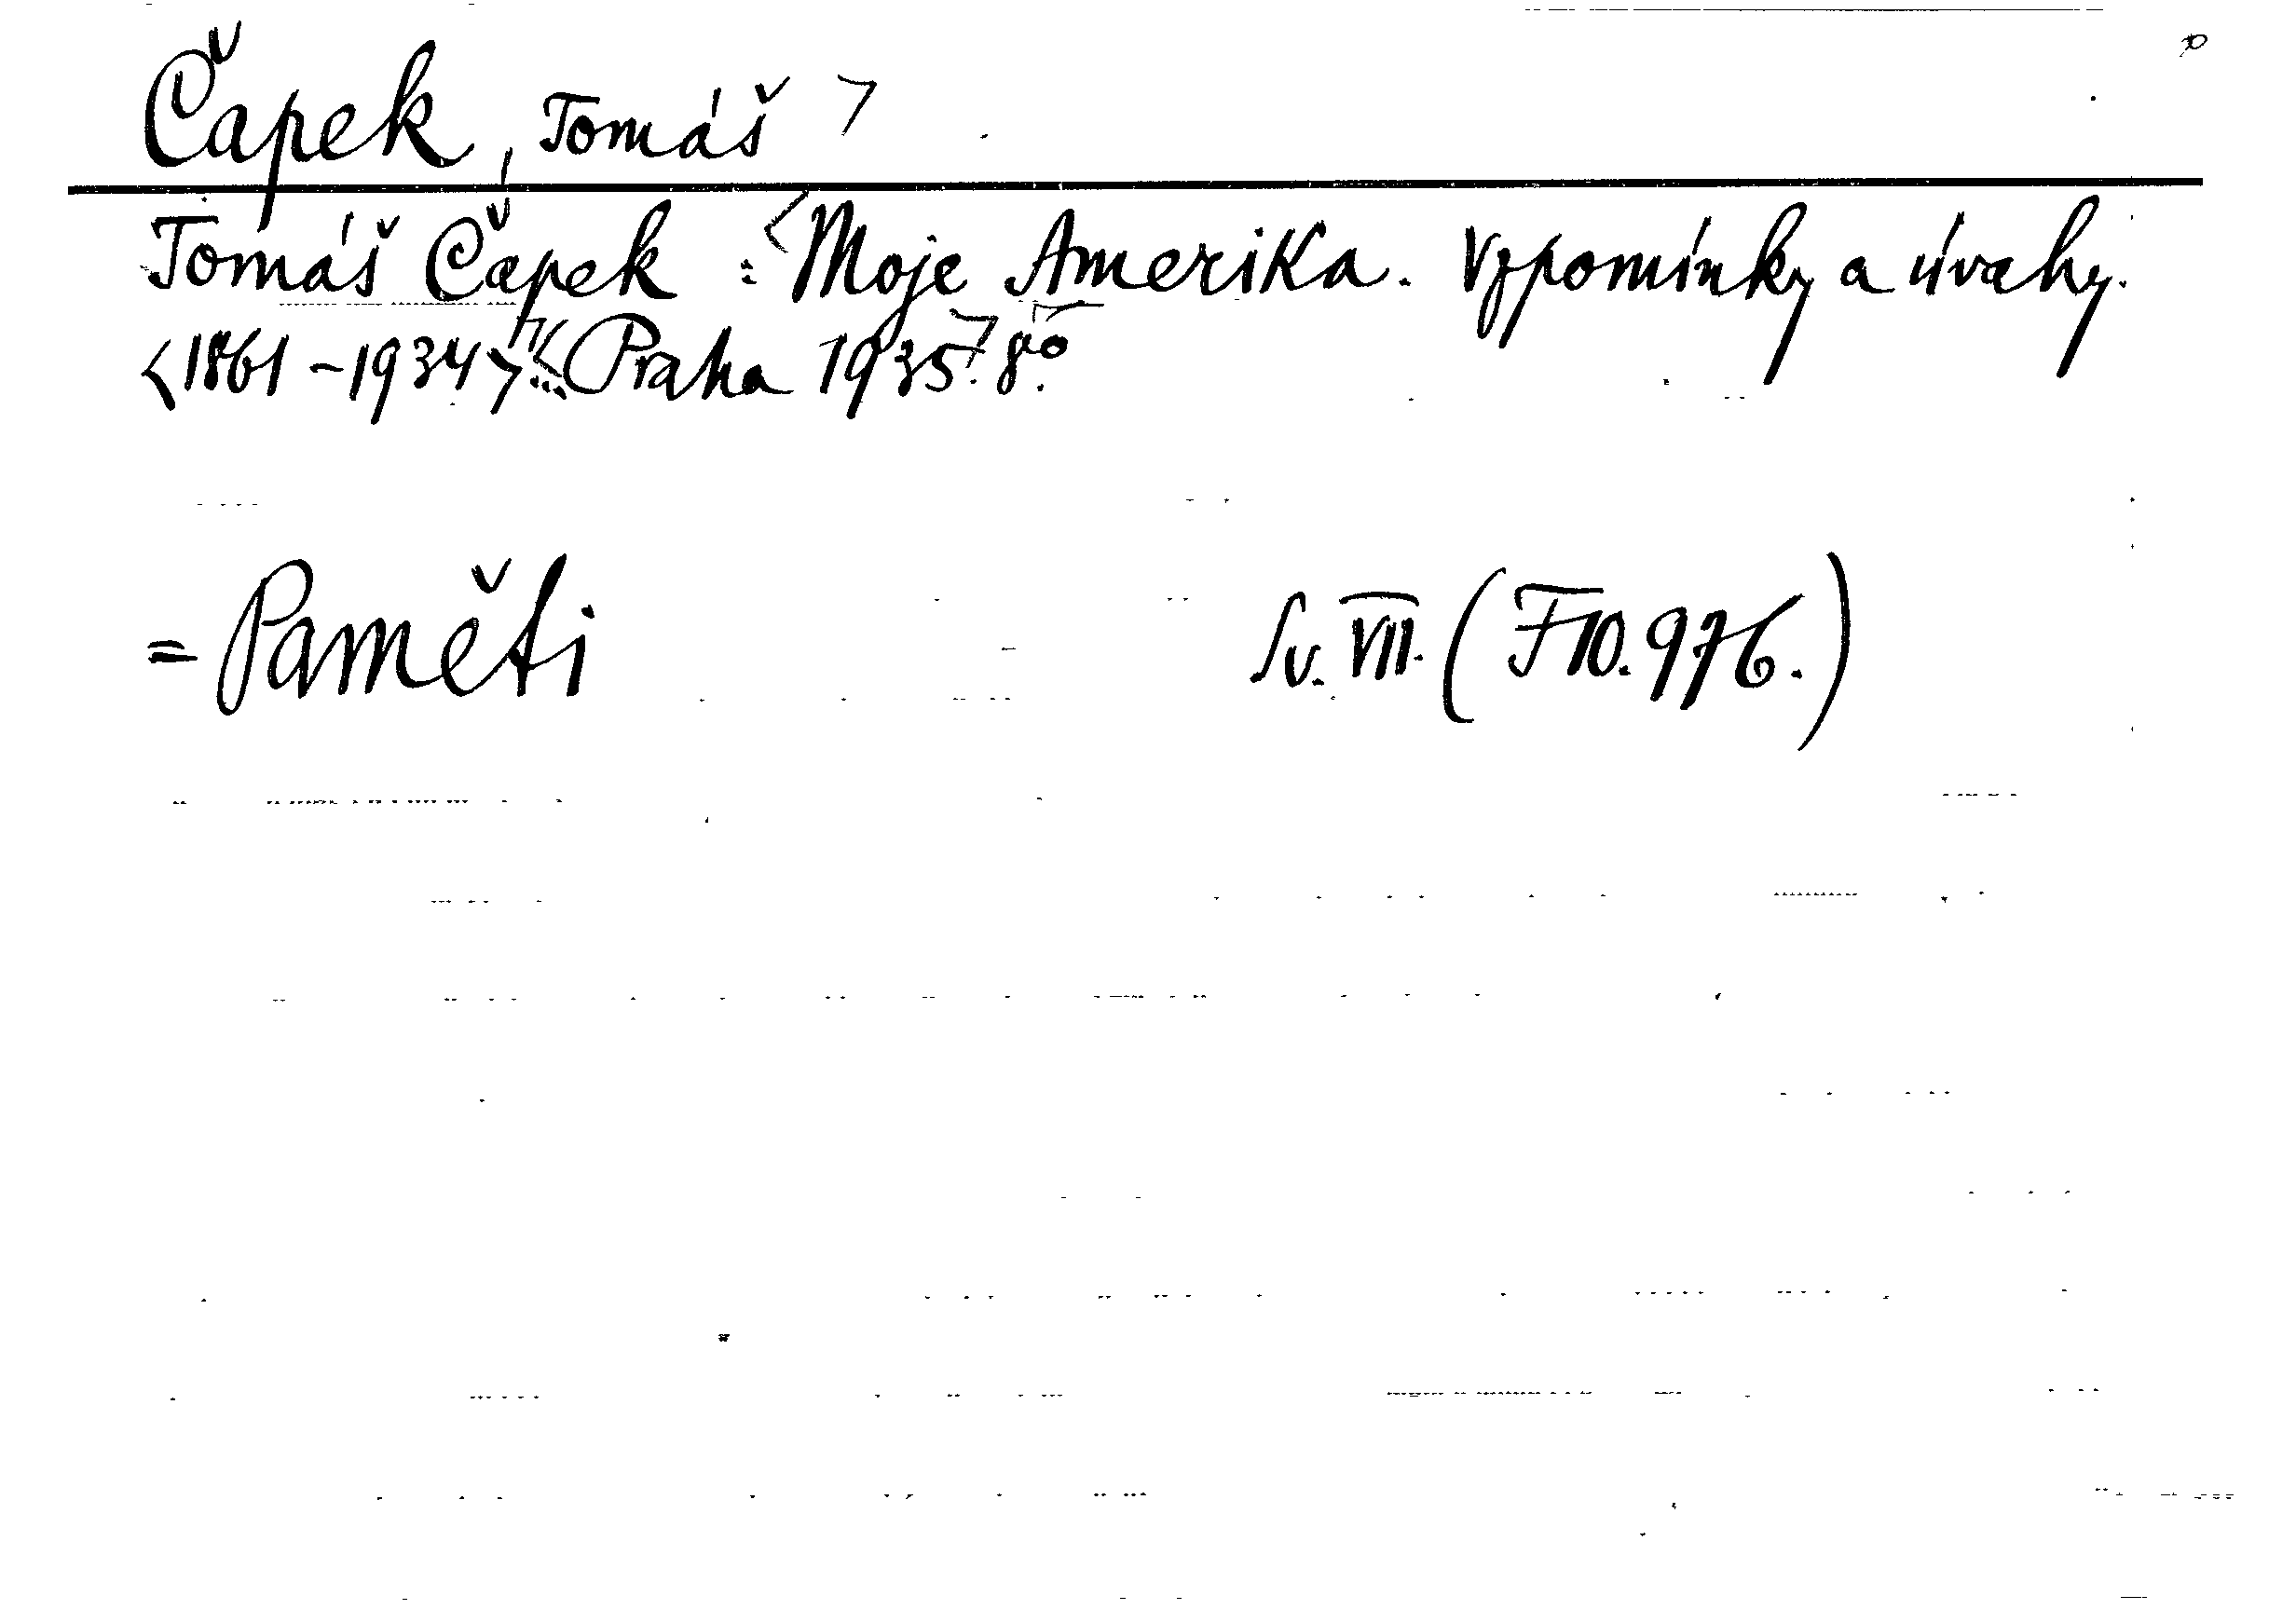 Čapek, Tomáš >
Tomáš Čapek : <Moje Amerika. Vzpomínky a úvahy.
<1861 - 1934>... <Praha 1935.> 8º.
= Paměti Sv. VII. (F10.976.)